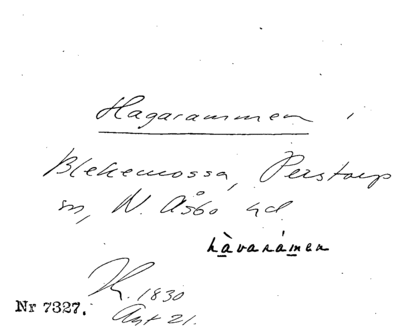 Hagarammen
Blekemossa, Perstorp
sn, N. Åsbo hd
hàvarámen
1830
Ant 21.
Nr 7327.